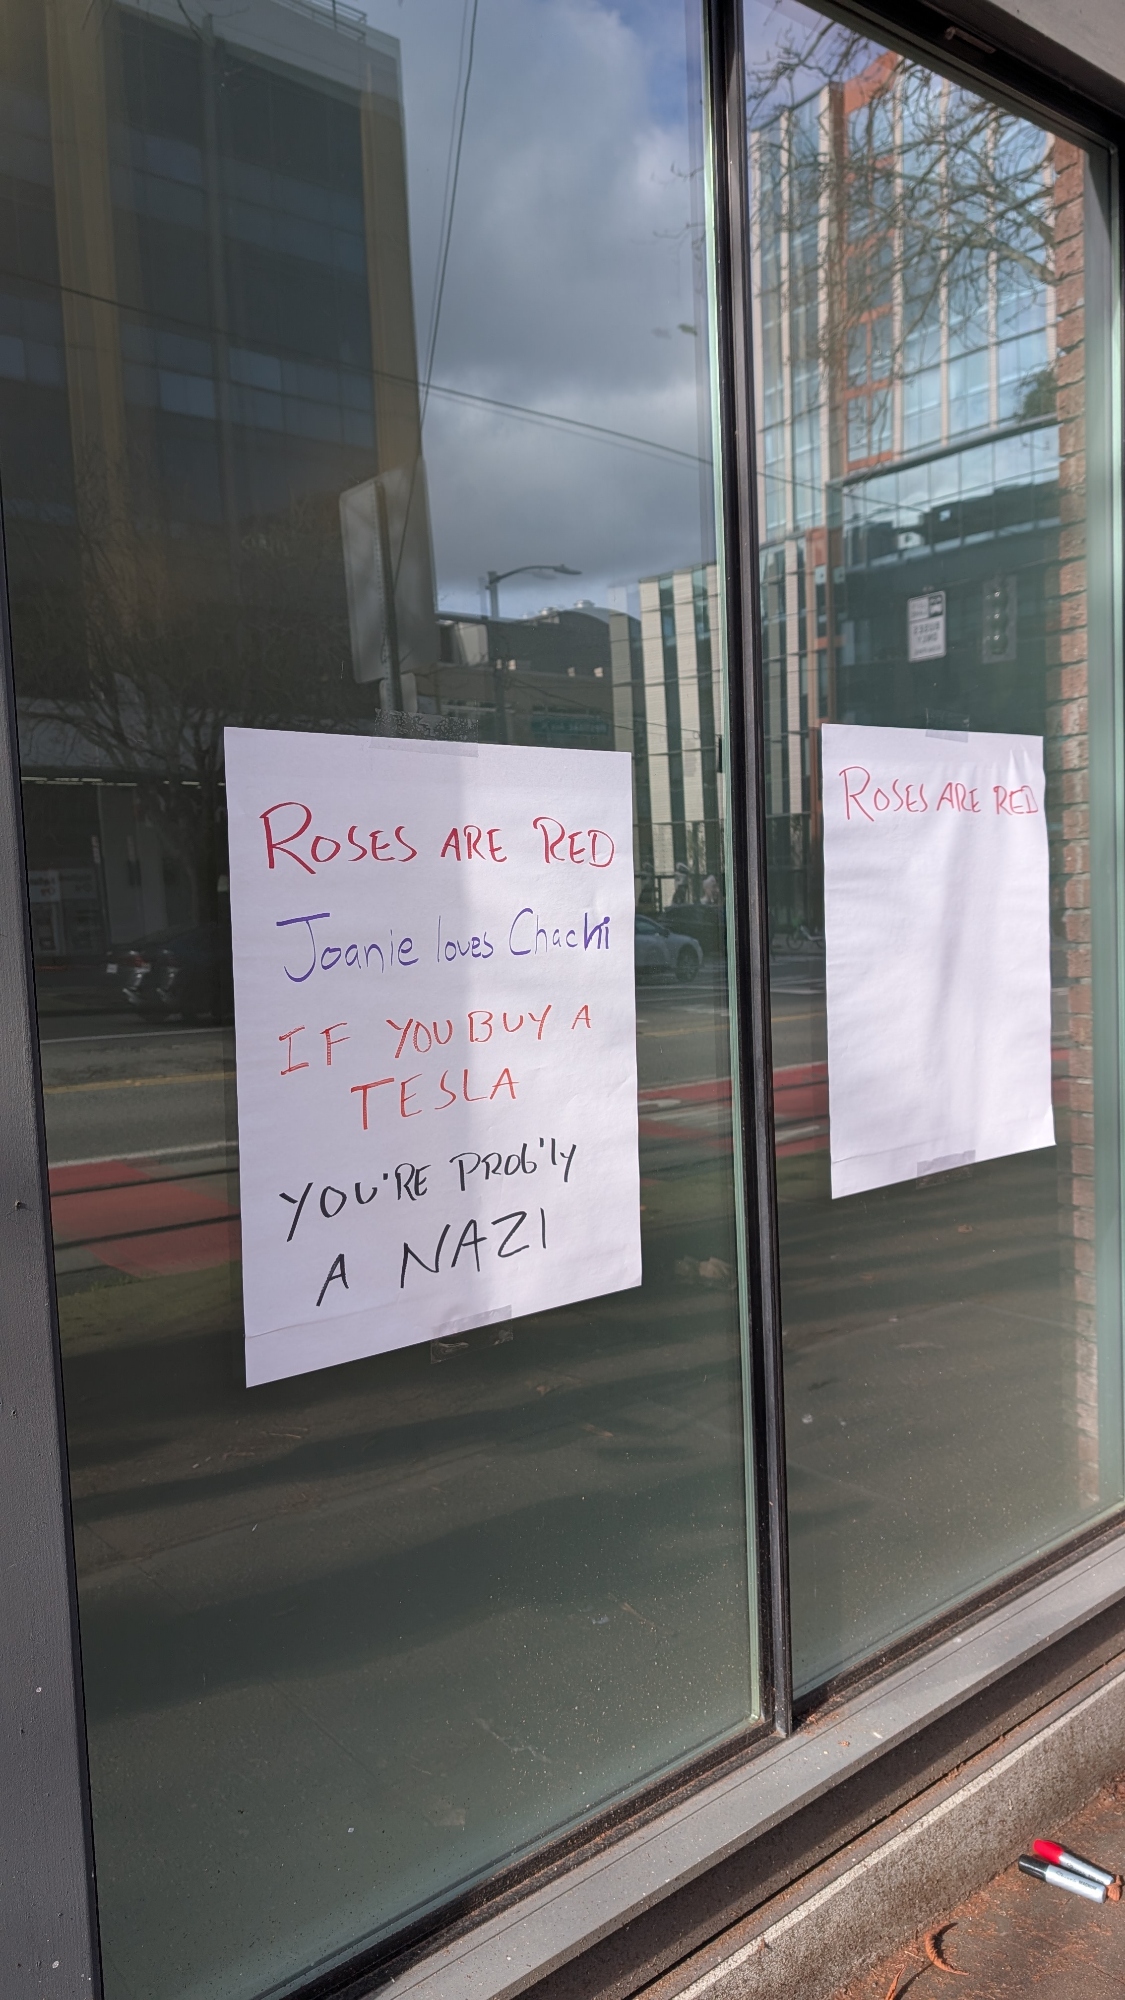 ROSES ARE RED
Joanie loves Chachi
IF YOU BUY A
TESLA
YOU'RE PROB'lY
A NAZI
ROSES ARE RED
BUSES
ONLY